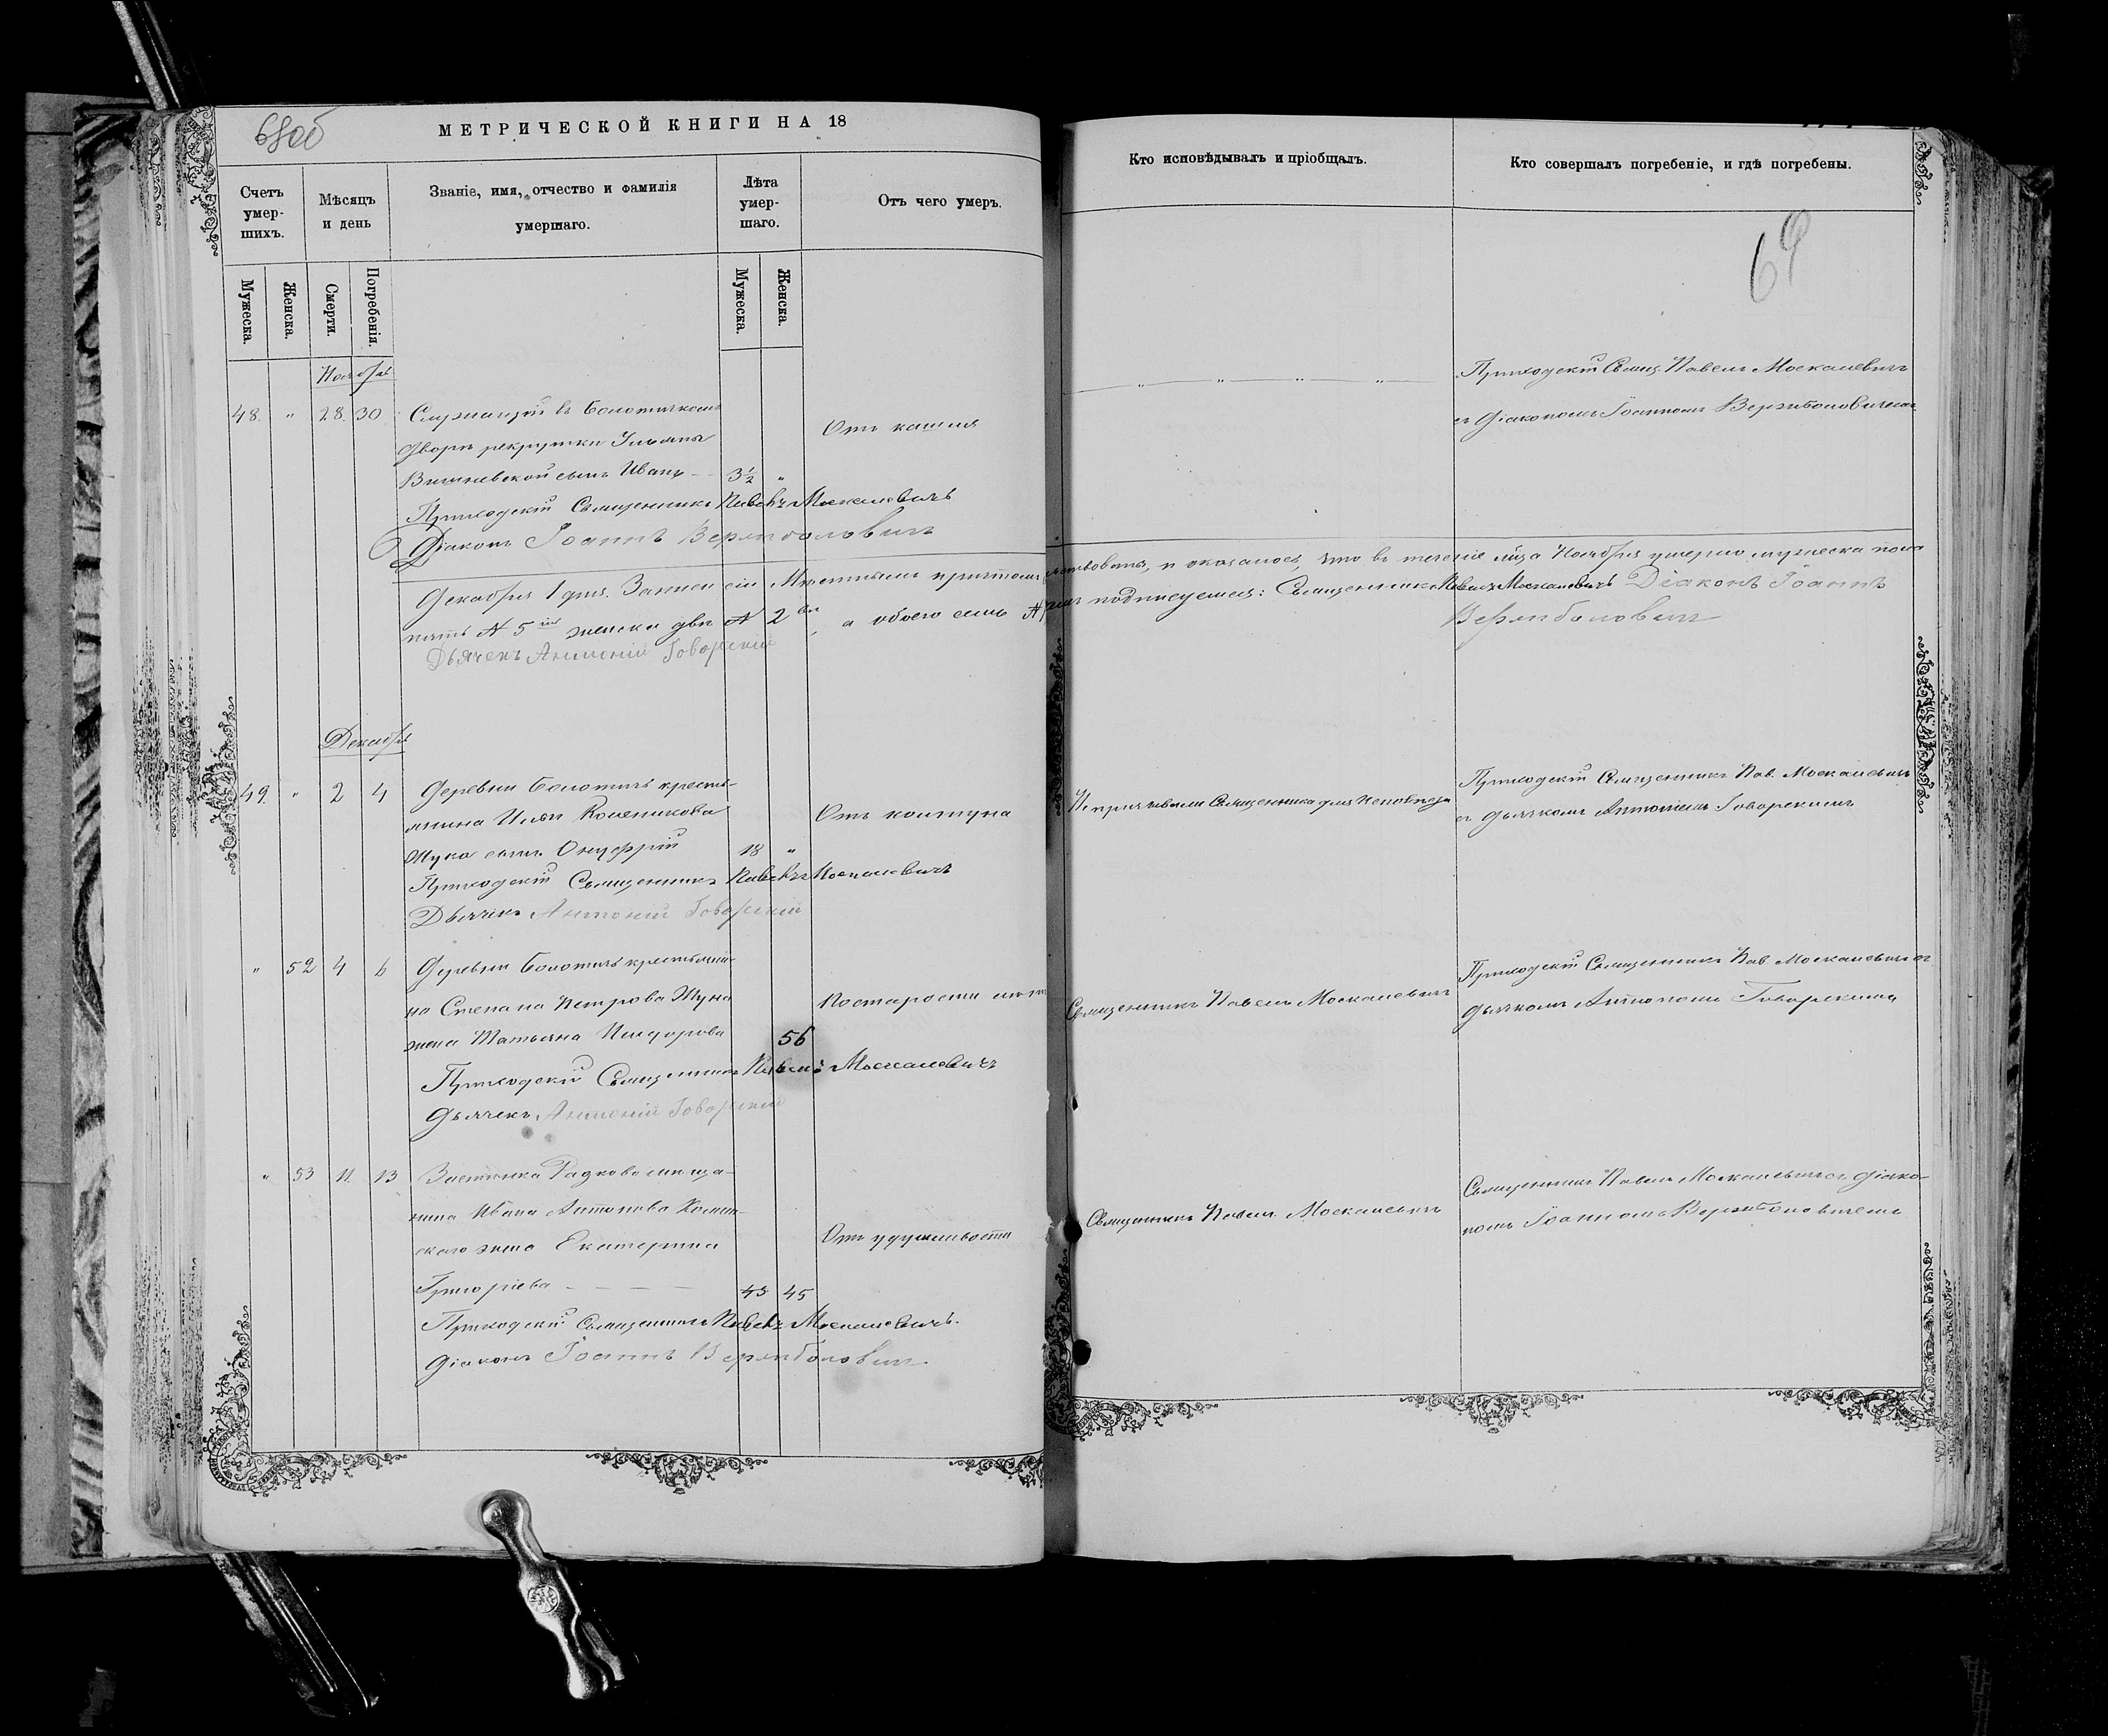 68об
МЕТРИЧЕСКОЙ КНИГИ НА 18
Счетъ умер-шихъ.
Мѣсяцъ и день
Званіе, имя, отчество и фамилія умершаго.
Лѣта умер-шаго.
Отъ чего умеръ.
Кто исповѣдывалъ и пріобщалъ.
Кто совершалъ погребеніе, и гдѣ погребены.
Мужеска.
Женска.
Смерти.
Погребенія.
Мужеска.
Женска.
69
Ноябрь
48. " 28. 30
Служащей въ Болотичкомъ
дворѣ рекрутки Ульяны
Вишневской сынъ Иванъ 3½ "
Отъ кашля
Приходскій Священникъ Павелъ Москалевичъ
Діаконъ Іоаннъ Вержболовичъ
Приходскій Свящ. Павелъ Москалевичъ
съ діакономъ Іоанномъ Вержболовичемъ
Декабря 1 дня. Записи сіи Мѣстнымъ причтомъ свидѣтельствованы, и оказалось, что въ теченіе мѣсяца Ноября умерло мужеска пола
пять № 5 женска двѣ № 2, а обоего семь № подписуемся: Священникъ Павелъ Москалевичъ Діаконъ Іоаннъ
Вержболовичъ
Дьячекъ Антоній Говорскій
Декабрь
49. " 2 4
Деревни Болотичъ кресть-
янина Ильи
Жука сынъ Онуфрій 18 "
Отъ колтуна
Не призывали Священника для исповѣди
Приходскій Священникъ Пав. Москалевичъ
съ дьячкомъ Антоніемъ Говорскимъ
Приходскій Священникъ Павелъ Москалевичъ
Дьячекъ Антоній Говорскій
" 52 4 6
Деревни Болотичъ крестьяни-
на Степана Петрова Жука
жена Татьяна 56
По старости лѣтъ
Священникъ Павелъ Москалевичъ
Приходскій Священникъ Пав. Москалевичъ съ
дьячкомъ Антоніемъ Говорскимъ
Приходскій Священникъ Павелъ Москалевичъ
Дьячекъ Антоній Говорскій
" 53 11. 13
Застѣнка Радково мѣща-
нина Ивана Антонова
скаго жена Екатерина
Григоріева 45 45
Отъ удушливости
Священникъ Павелъ Москалевичъ
Священникъ Павелъ Москалевичъ съ діако-
номъ Іоанномъ Вержболовичемъ
Приходскій Священникъ Павелъ Москалевичъ.
Діаконъ Іоаннъ Вержболовичъ